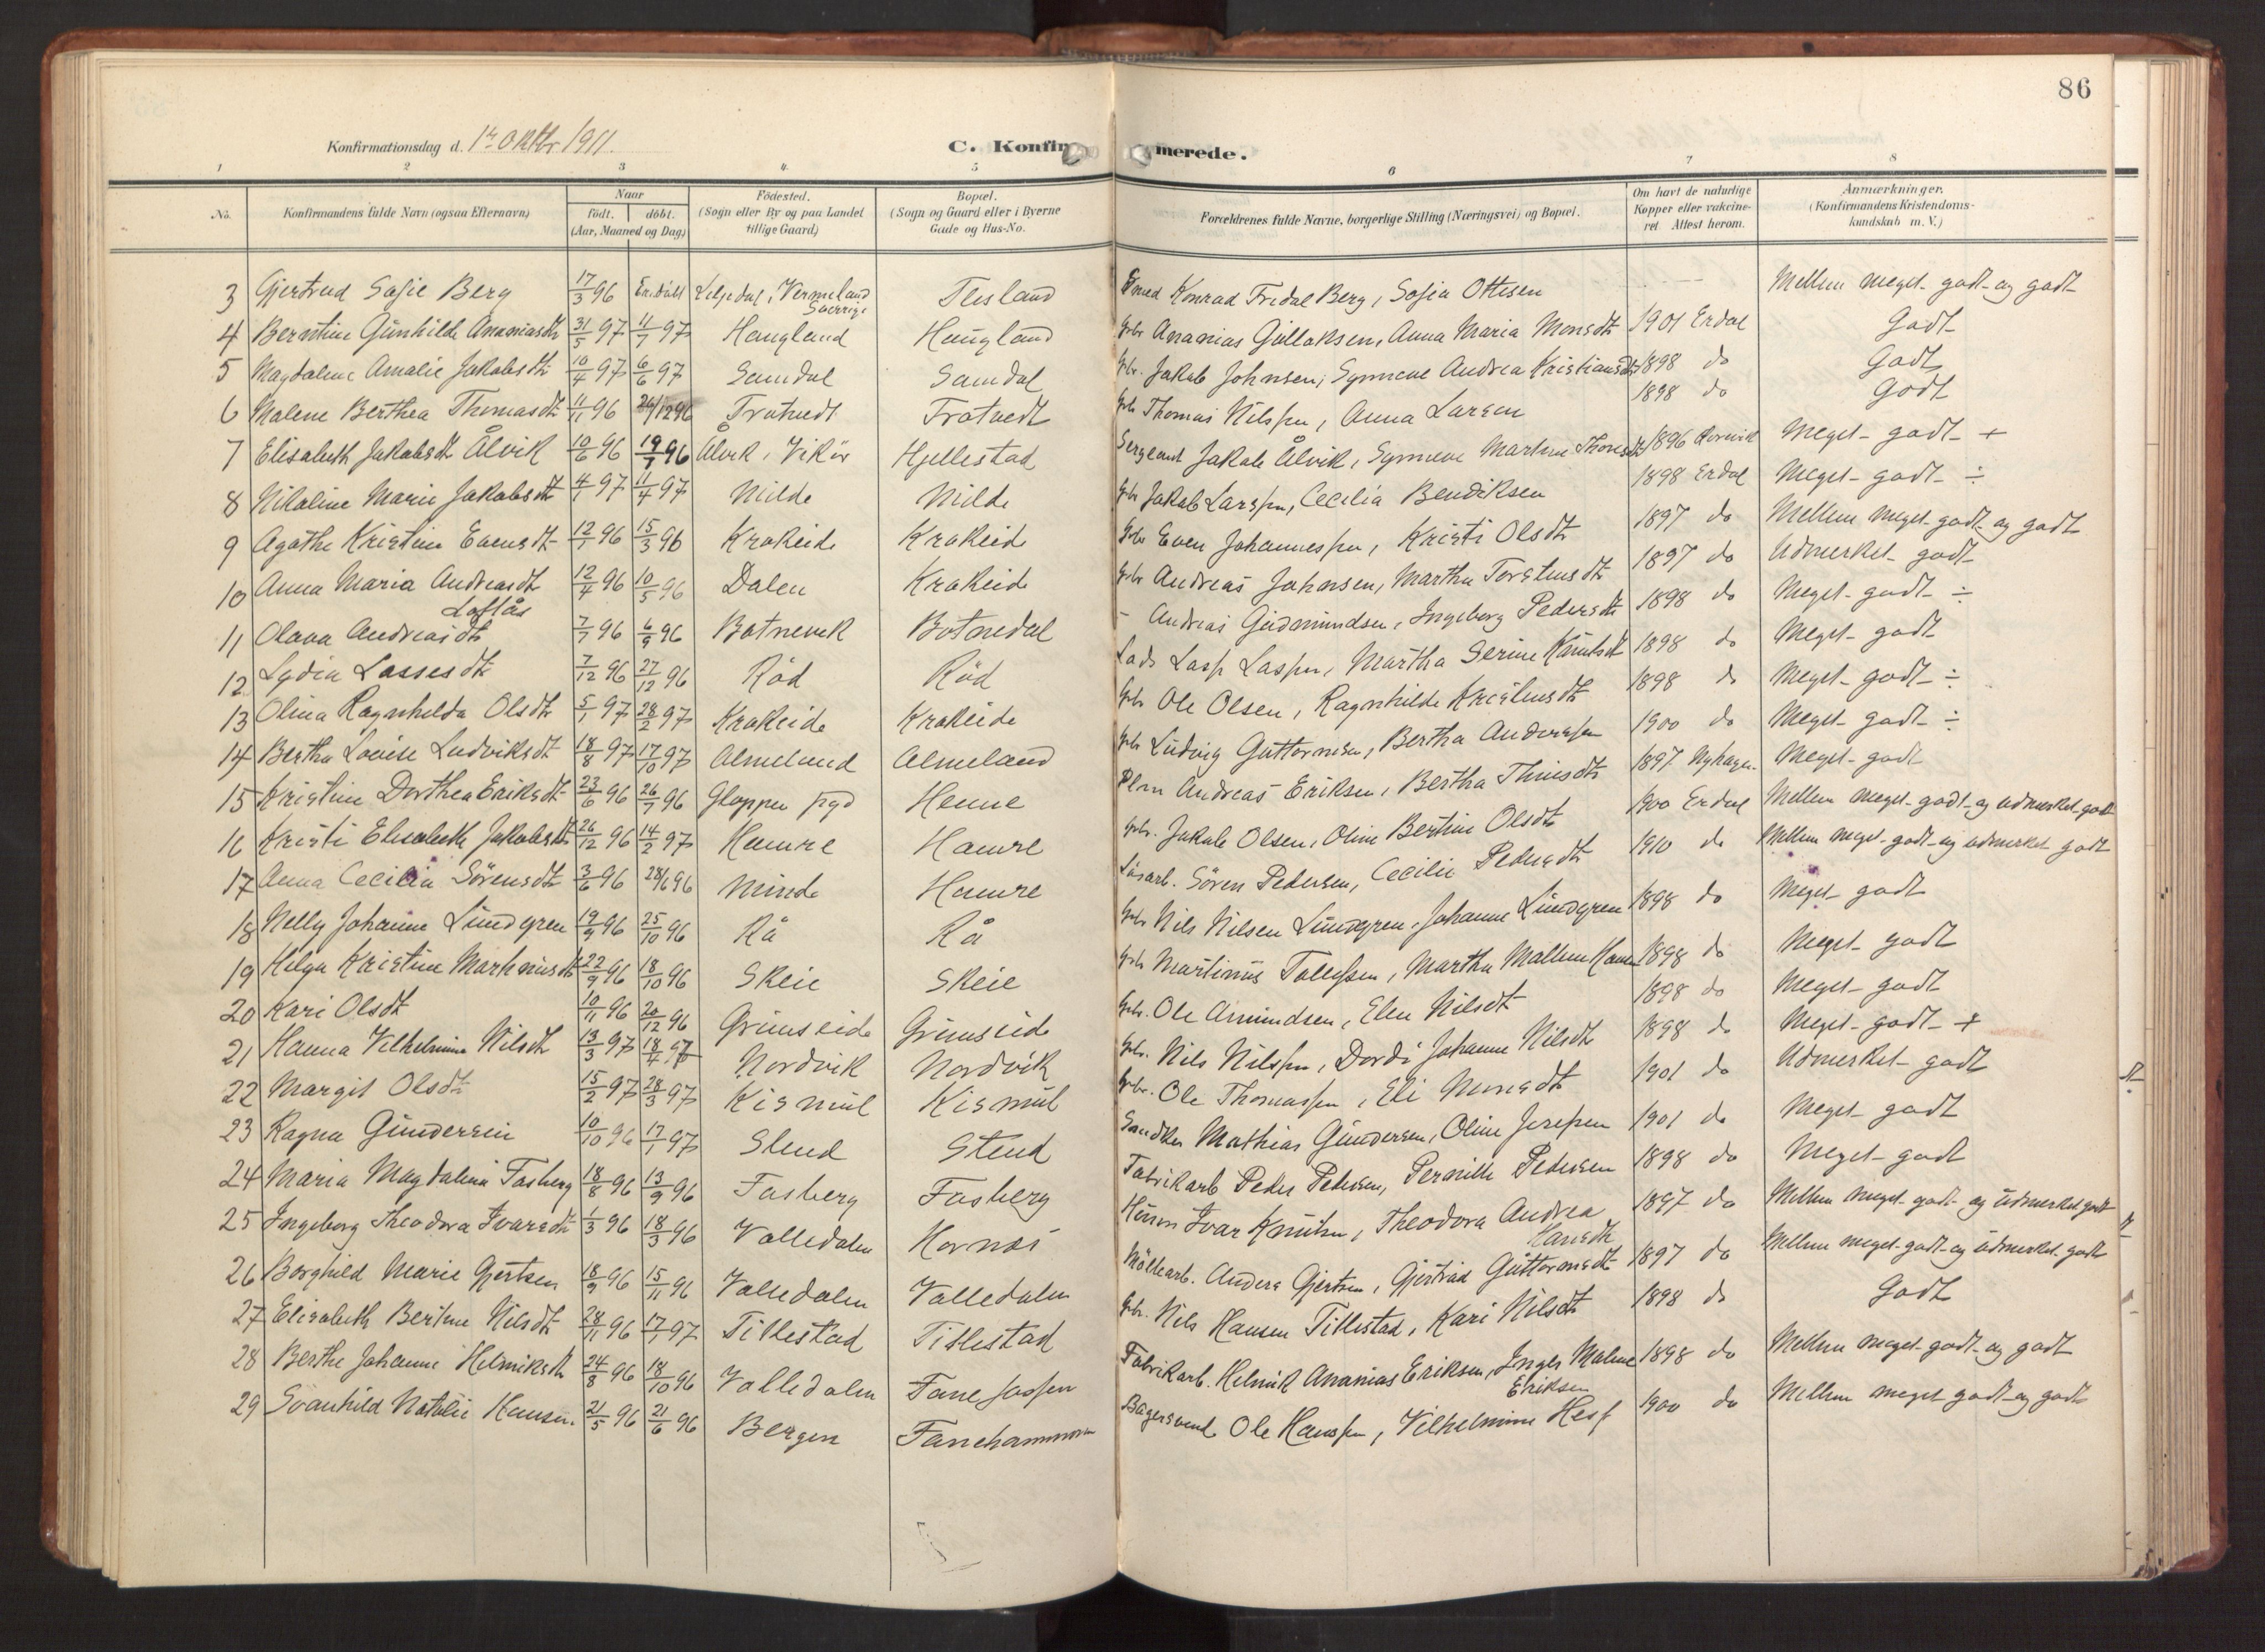 86
Konfirmationsdag d. 1ste Oktbr 1911.
C. Konfir merede.
1 2 3 4. 5 6 7 8
No.
Konfirmandens fulde Navn (ogsaa Efternavn)
Naar
födt. döbt.
(Aar, Maaned og Dag)
Födested.
(Sogn eller By og paa Landet
tillige Gaard)
Bopæl.
(Sogn og Gaard eller i Byerne
Gade og Hus-No.
Forældrenes fulde Navne, borgerlige Stilling (Næringsvei) og Bopæl.
Om havt de naturlige
Kopper eller vakcine-
ret. Attest herom.
Anmærkninger.
(Konfirmandens Kristendoms-
kundskab m. V.)
3 Gjertrud Sofie Berg 17/3 96 Vermeland Sverrige Tlesland Smed Konrad Fredal Berg, Sofia Ottesen Mellem meget godt og godt
4 Berntine Gunhilde Ananiasdtr 31/5 97 11/7 97 Haugland Haugland Gbr Ananias Gullaksen, Anna Maria Monsdtr 1901 Erdal Godt
5 Magdalene Amalie Jakobsdtr 10/4 97 6/6 97 Samdal Samdal Gbr. Jakob Johnsen, Synneve Andrea Kristiansdtr 1898 do Godt
6 Malene Berthea Thomasdtr 11/11 96 26/12 96 Trotvedt Trotvedt Gbr Thomas Nilssen, Anna Larsen 1898 do Godt
7 Elisabeth Jakobsdtr Ålvik 10/6 96 19/7 96 Ålvik, Vikör Hjellestad Sergeant Jakob Ålvik, Synneve Martine Thomsdtr 1896 Meget godt +
8 Nikoline Marie Jakobsdtr 4/1 97 11/4 97 Milde Milde Gbr Jakob Larssen, Cecilia Bendiksen 1898 Erdal Meget godt ÷
9 Agathe Kristine Evensdtr 12/1 96 15/3 96 Krokeide Krokeid Gbr Even Johannessen, Kristi Olsdtr 1897 do Mellem meget godt og godt
10 Anna Maria Andreasdtr 12/4 96 10/5 96 Dalen Krokeide Gbr Andreas Johnsen, Martha Torstensdtr 1897 do Udmerket godt
Loftås
11 Olava Andreasdtr 7/7 96 6/9 96 Botnevik Botnedal - Andreas Gudmundsen, Ingeborg Pedersdtr 1898 do Meget godt ÷
12 Lydia Lassesdtr 7/12 96 27/12 96 Röd Röd Lods Lass Lassen, Martha Serine Knutsdtr 1898 do Meget godt
13 Olina Ragnhilda Olsdtr 5/1 97 28/2 97 Krokeide Krokeide Gbr Ole Olsen, Ragnhilde Kristensdtr 1898 do Meget godt ÷
14 Bertha Louise Ludviksdtr 18/8 97 17/10 97 Almeland Almeland Gbr Ludvig Guttormsen, Bertha Anderssen 1900 do Meget godt ÷
15 Kristine Dorthea Eriksdtr 23/6 96 26/7 96 Gloppen pgd Henne Plm Andreas Eriksen, Bertha Thuesdtr 1897 Meget godt
16 Kristi Elisabeth Jakobsdtr 26/12 96 14/2 97 Hamre Hamre Gbr. Jakob Olsen, Oline Bertine Olsdtr 1900 Erdal Mellem meget godt og udmerket godt
17 Anna Cecilia Sörensdtr 3/6 96 28/6 96 Minde Hamre Lösarb. Sören Pedersen, Cecilie Pedersdtr 1910 do Mellem meget godt og udmerket godt
18 Nelly Johanne Lundgren 19/9 96 25/10 96 Rå Rå Gbr Nils Nilsen Lundgren, Johanne Lundgren 1898 do Meget godt
19 Helga Kristine Martinusdtr 22/9 96 18/10 96 Skeie Skeie Gbr Martinus Tollefsen, Martha Mallene Hansen 1898 do Meget godt
20 Kari Olsdtr 10/11 96 20/12 96 Grimseide Grimseide Gbr. Ole Amundsen, Elen Nilsdtr 1898 do Meget godt
21 Hanna Vilhelmine Nilsdtr 13/3 97 18/4 97 Nordvik Nordvik Gbr. Nils Nilssen, Dordi Johanne Nilsdtr 1898 do Meget godt +
22 Margit Olsdtr 15/2 97 28/3 97 Kismul Kismul Gbr. Ole Thomassen, Eli Monsdtr 1901 do Udmerket godt
23 Ragna Gundersen 10/10 96 17/1 97 Stend Stend Mathias Gundersen, Oline Josefsen 1901 do Meget godt
24 Maria Magdalena Fasberg 18/8 96 13/9 96 Fasberg Fasberg Fabrikarb Peder Pedersen, Pernille Pedersen 1898 do Meget godt
25 Ingeborg Theodora Ivarsdtr 1/3 96 18/3 96 Valledalen Hornæs Husm Ivar Knutsen, Theodora Andrea 1897 do Mellem meget godt og udmerket godt
Hansdtr
26 Borghild Marie Gjertsen 18/9 96 15/11 96 Valledalen Valledalen Möllearb. Anders Gjertsen, Gjertrud Guttormsdtr 1897 do Mellem meget godt og udmerket godt
27 Elisabeth Bertine Nilsdtr 28/11 96 17/1 97 Titlestad Titlestad Gbr. Nils Hansen Titlestad, Kari Nilsdtr 1898 do Godt
28 Berthe Johanne Helmiksdtr 24/8 96 18/10 96 Valledalen Fanefossen Fabrikarb. Helmik Ananias Eriksen, Inger Malene 1898 do Mellem meget godt og godt
Eriksen
29 Svanhild Natalie Hansen. 21/5 96 21/6 96 Bergen Fanehammeren Bagersvend Ole Hanssen, Vilhelmine Hess 1900 do Mellem meget godt og godt